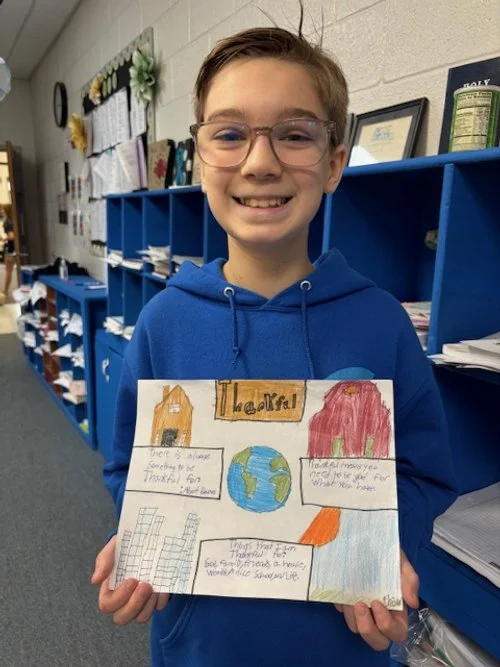 HOLY
Thankful
There is always
Something to be
Thankful for
Thankful means you
need to be glad for
what you have
Things that I am
Thankful for
God, family, friends, a house,
School, and life